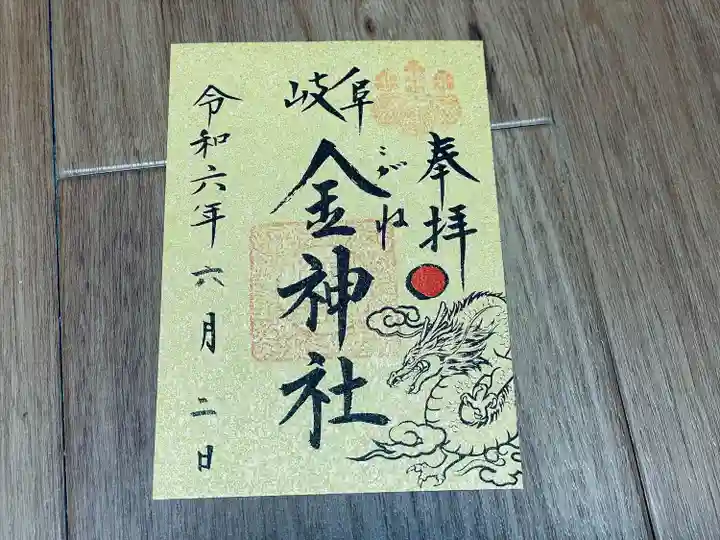 奉拝
岐阜
こがね
金神社
令和六年六月二日